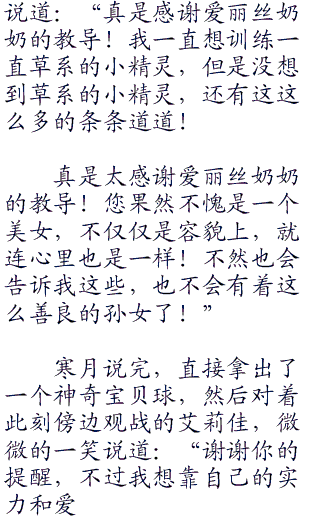 说道：“真是感谢爱丽丝奶
奶的教导！我一直想训练一
直草系的小精灵，但是没想
到草系的小精灵，还有这这
么多的条条道道！
真是太感谢爱丽丝奶奶
的教导！您果然不愧是一个
美女，不仅仅是容貌上，就
连心里也是一样！不然也会
告诉我这些，也不会有着这
么善良的孙女了！”
寒月说完，直接拿出了
一个神奇宝贝球，然后对着
此刻傍边观战的艾莉佳，微
微的一笑说道：“谢谢你的
提醒，不过我想靠自己的实
力和爱